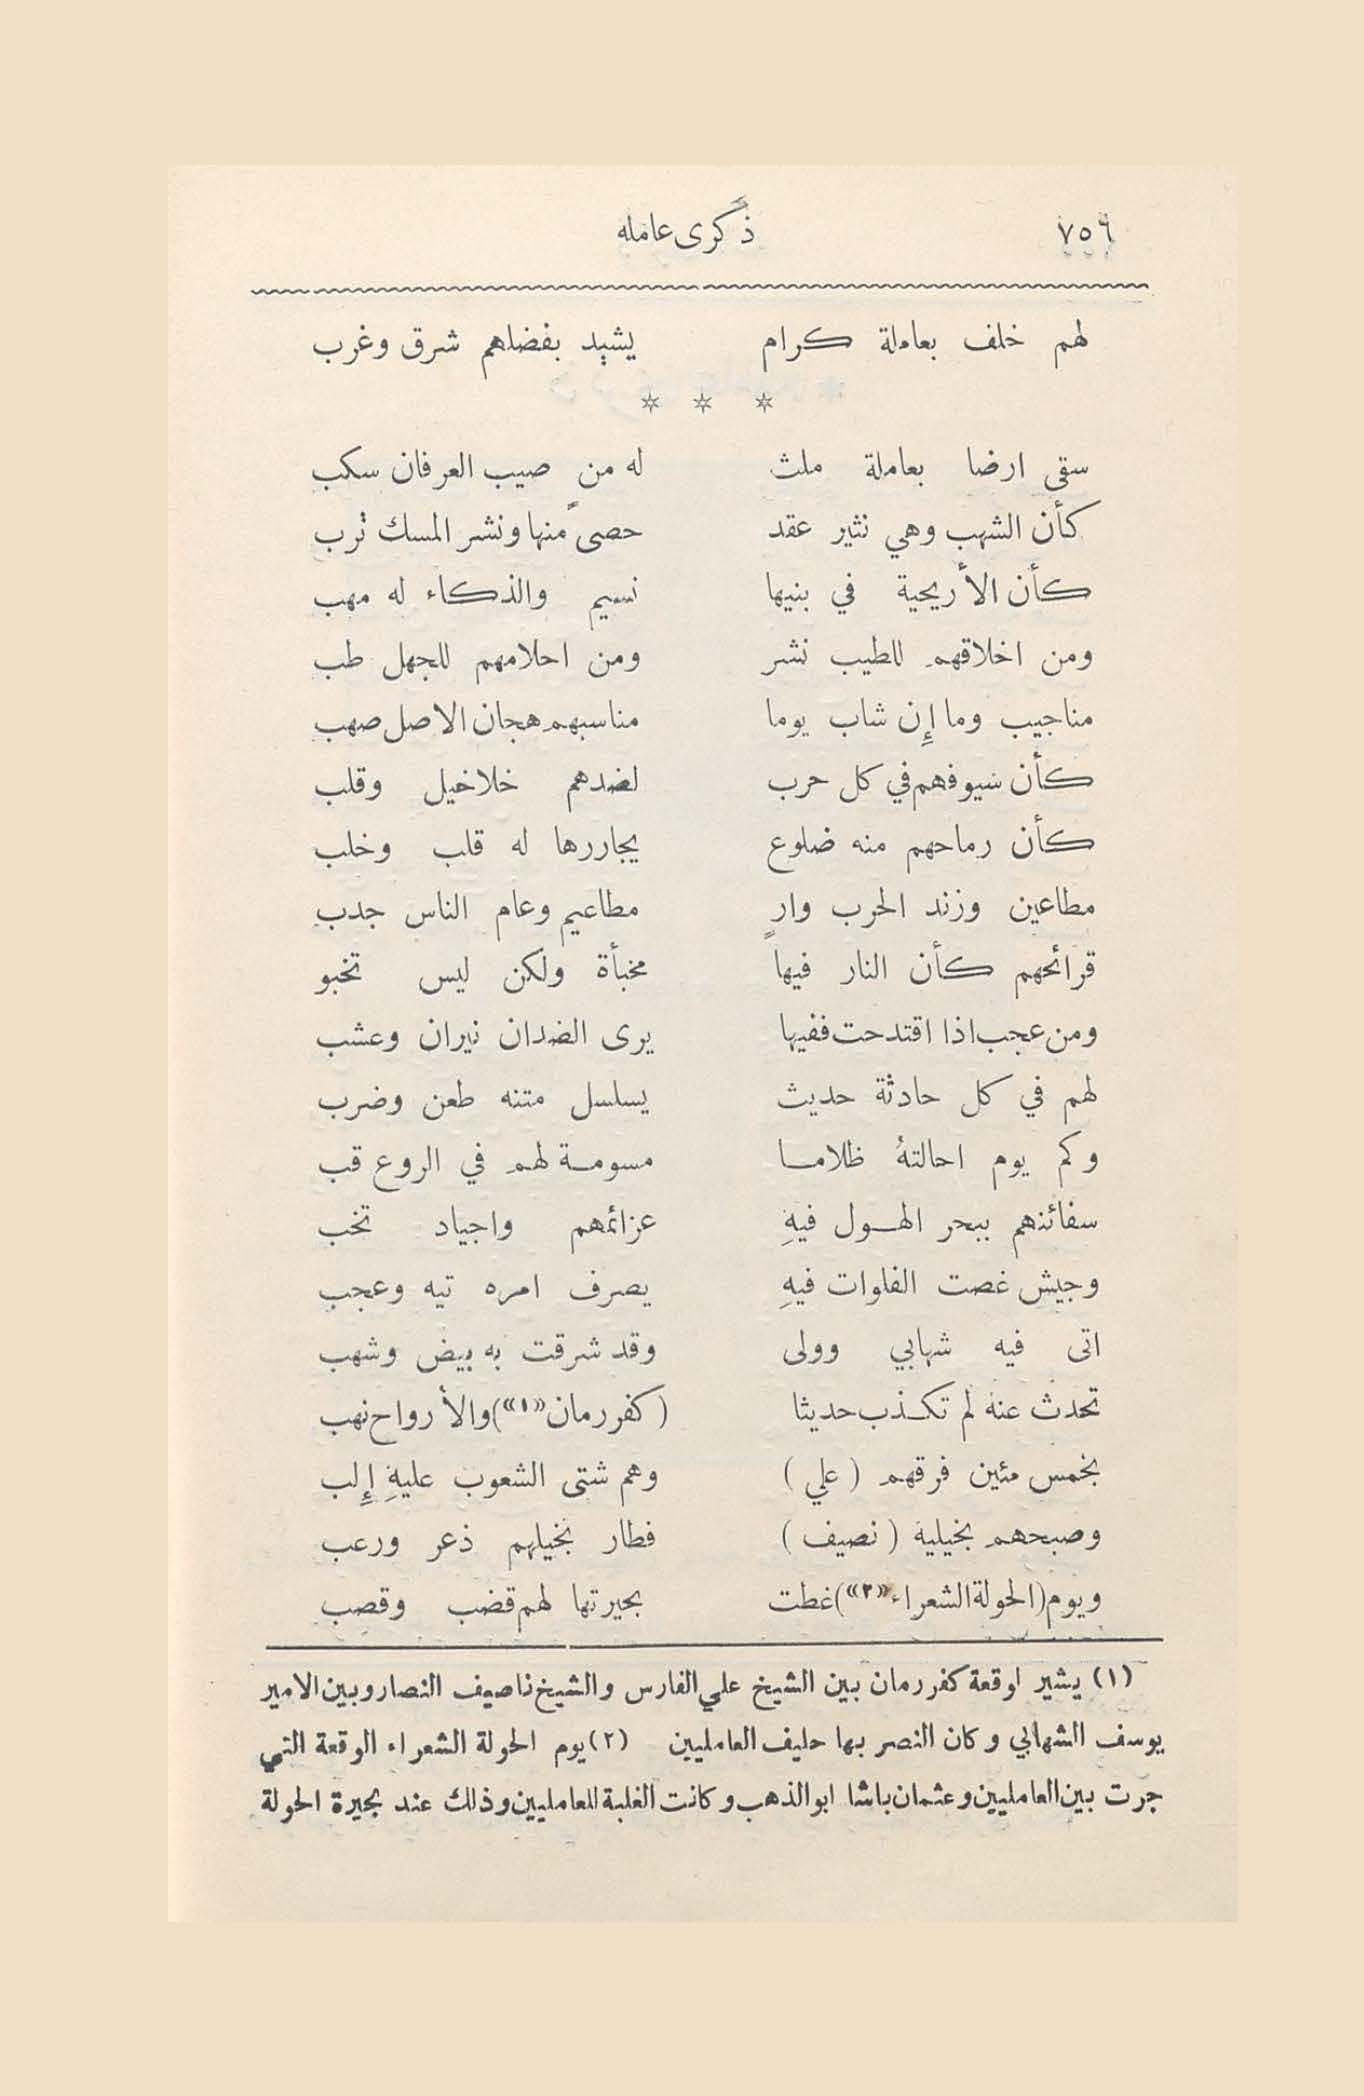 ٧٥٦ ذكرى عامله
لهم خلف بعاملة كرام يشيد بفضلهم شرق وغرب
* * *
سقى ارضا بعاملة ملث له من صيب العرفان سكب
كأن الشهب وهي نثير عقد حصىً منها ونشر المسك ترب
كأن الأريحية في بنيها نسيم والذكاء له مهب
ومن اخلاقهم للطيب نشر ومن احلامهم للجهل طب
مناجيب وما إن شاب يوما مناسبهم هجان الاصل صهب
كأن سيوفهم في كل حرب لضدهم خلاخيل وقلب
كأن رماحهم منه ضلوع يجاررها له قلب وخلب
مطاعين وزند الحرب وارٍ مطاعيم وعام الناس جدب
قرائحهم كأن النار فيها مخبأة ولكن ليس تخبو
ومن عجب اذا اقتدحت ففيها يرى الضدان نيران وعشب
لهم في كل حادثة حديث يسلسل متنه طعن وضرب
وكم يوم احالتهُ ظلاما مسومة لهم في الروع قب
سفائنهم ببحر الهول فيهِ عزائمهم واجياد تخب
وجيش غصت الفلوات فيهِ يصرف امره تيه وعجب
اتى فيه شهابي وولى وقد شرقت به بيض وشهب
تحدث عنه لم تكذب حديثا (كفررمان«١») والأرواح نهب
بخمس مئين فرقهم (علي) وهم شتى الشعوب عليهِ إلب
وصبحهم بخيلية (نصيف) فطار بخيلهم ذعر ورعب
ويوم (الحولة الشعراء«٢») غطت بحيرتها لهم قضب وقصب
(١) يشير لوقعة كفررمان بين الشيخ علي الفارس والشيخ ناصيف النصار وبين الامير
يوسف الشهابي وكان النصر بها حليف العامليين (٢) يوم الحولة الشعراء الوقعة التي
جرت بين العامليين وعثمان باشا ابو الذهب وكانت الغلبة للعامليين وذلك عند بحيرة الحولة